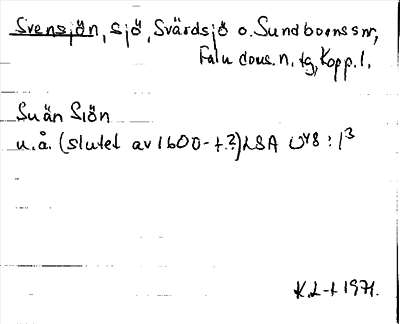 Svensjön, sjö, Svärdsjö o. Sundborns snr,
Falu doms. n. tg, Kopp. l.
Suän Siön
u. å. (slutet av 1600-t.?) LSA U48:1³
K.L-t 1971.